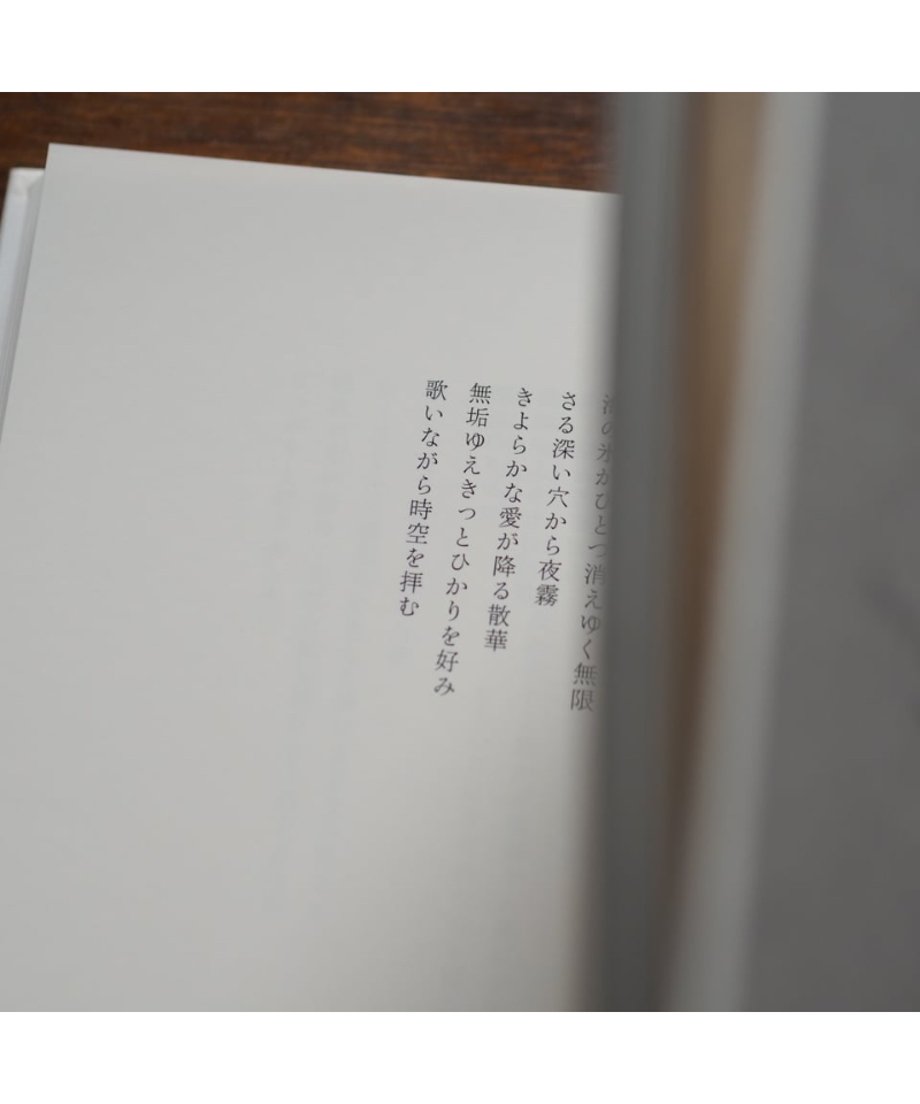 の氷がひとつ消えゆく無限
さる深い穴から夜霧
きよらかな愛が降る散華
無垢ゆえきっとひかりを好み
歌いながら時空を拝む